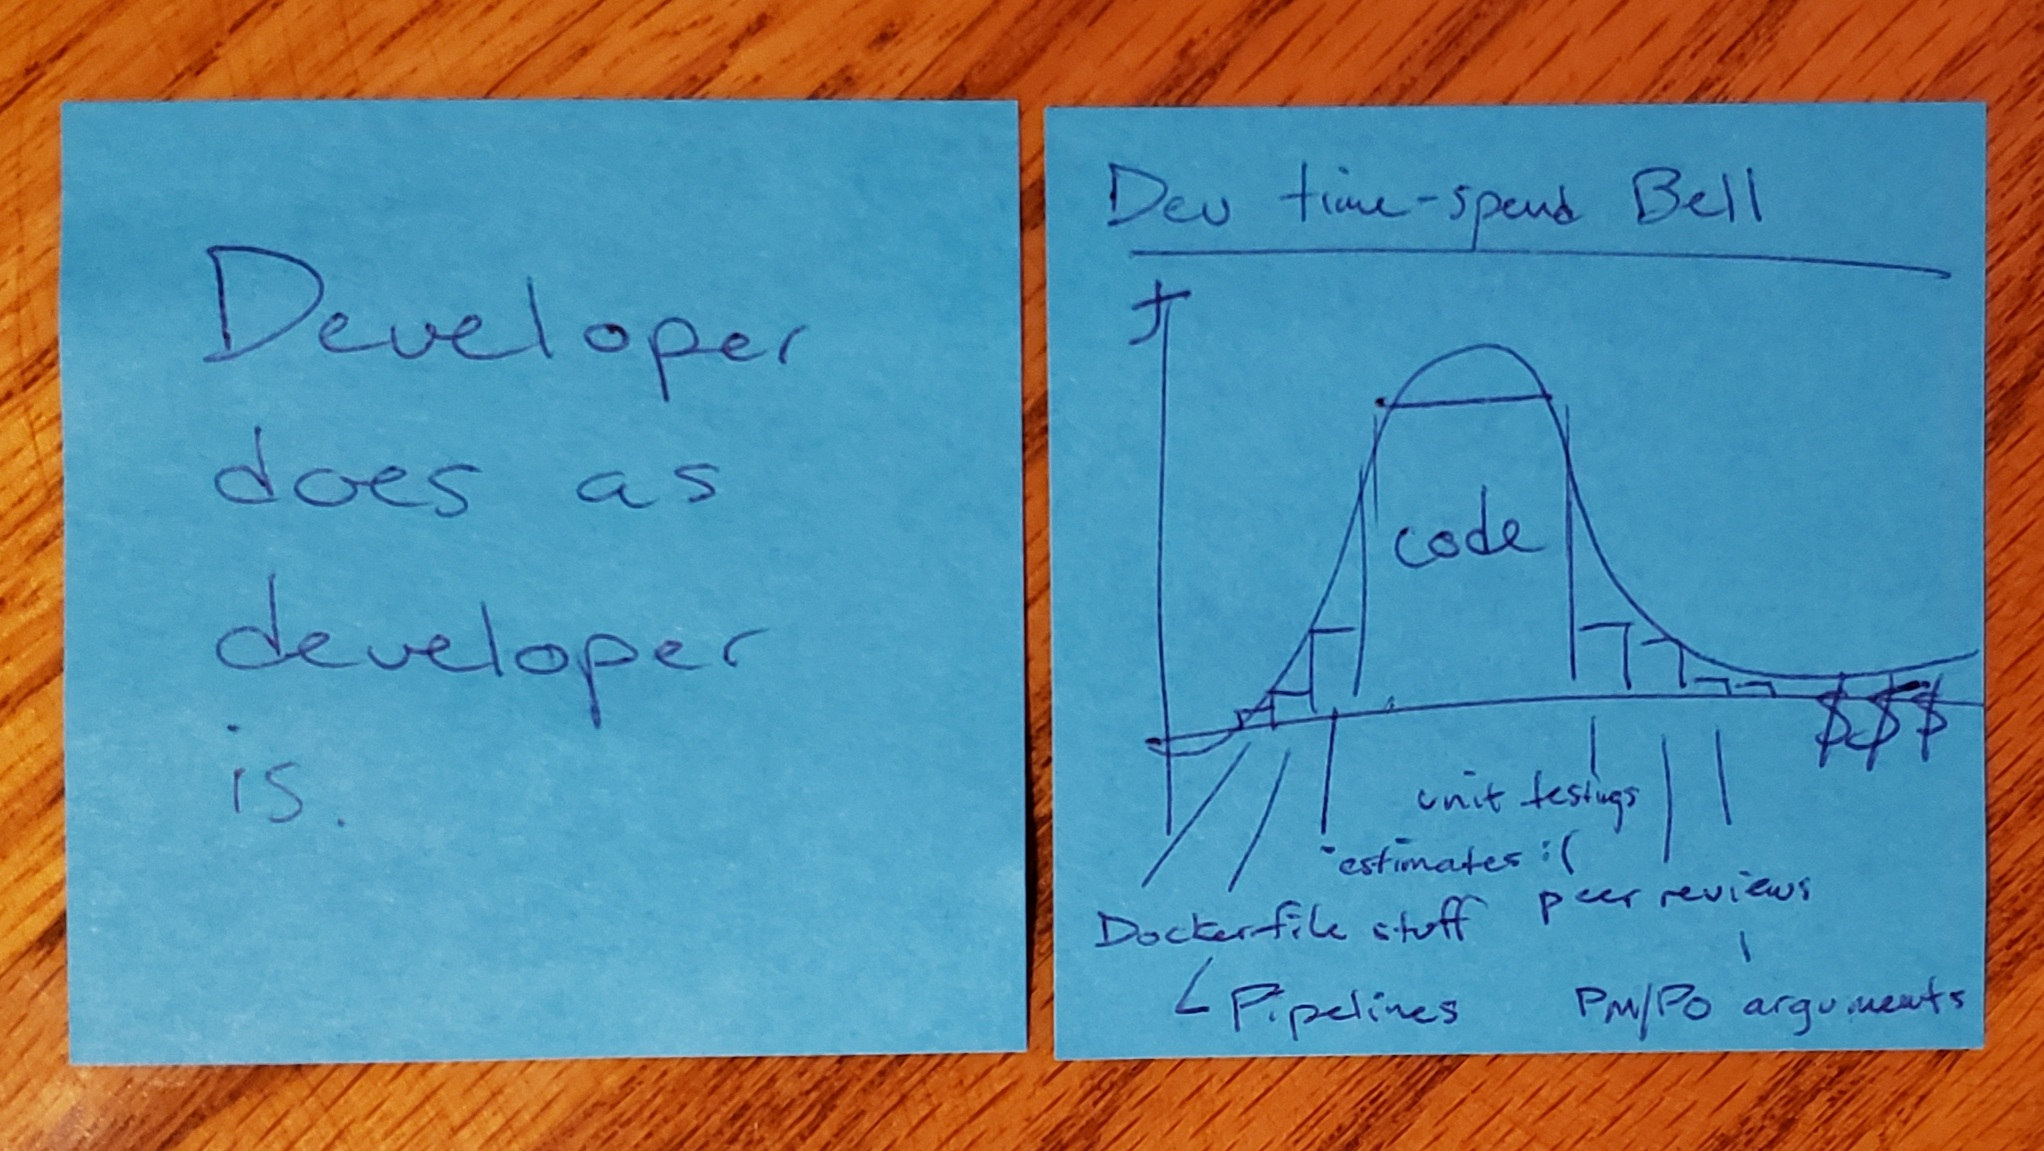 Developer
does as
developer
is.
Dev time-spend Bell
t
code
$$$
unit testings
estimates :(
peer reviews
Dockerfile stuff
Pipelines
PM/PO arguments